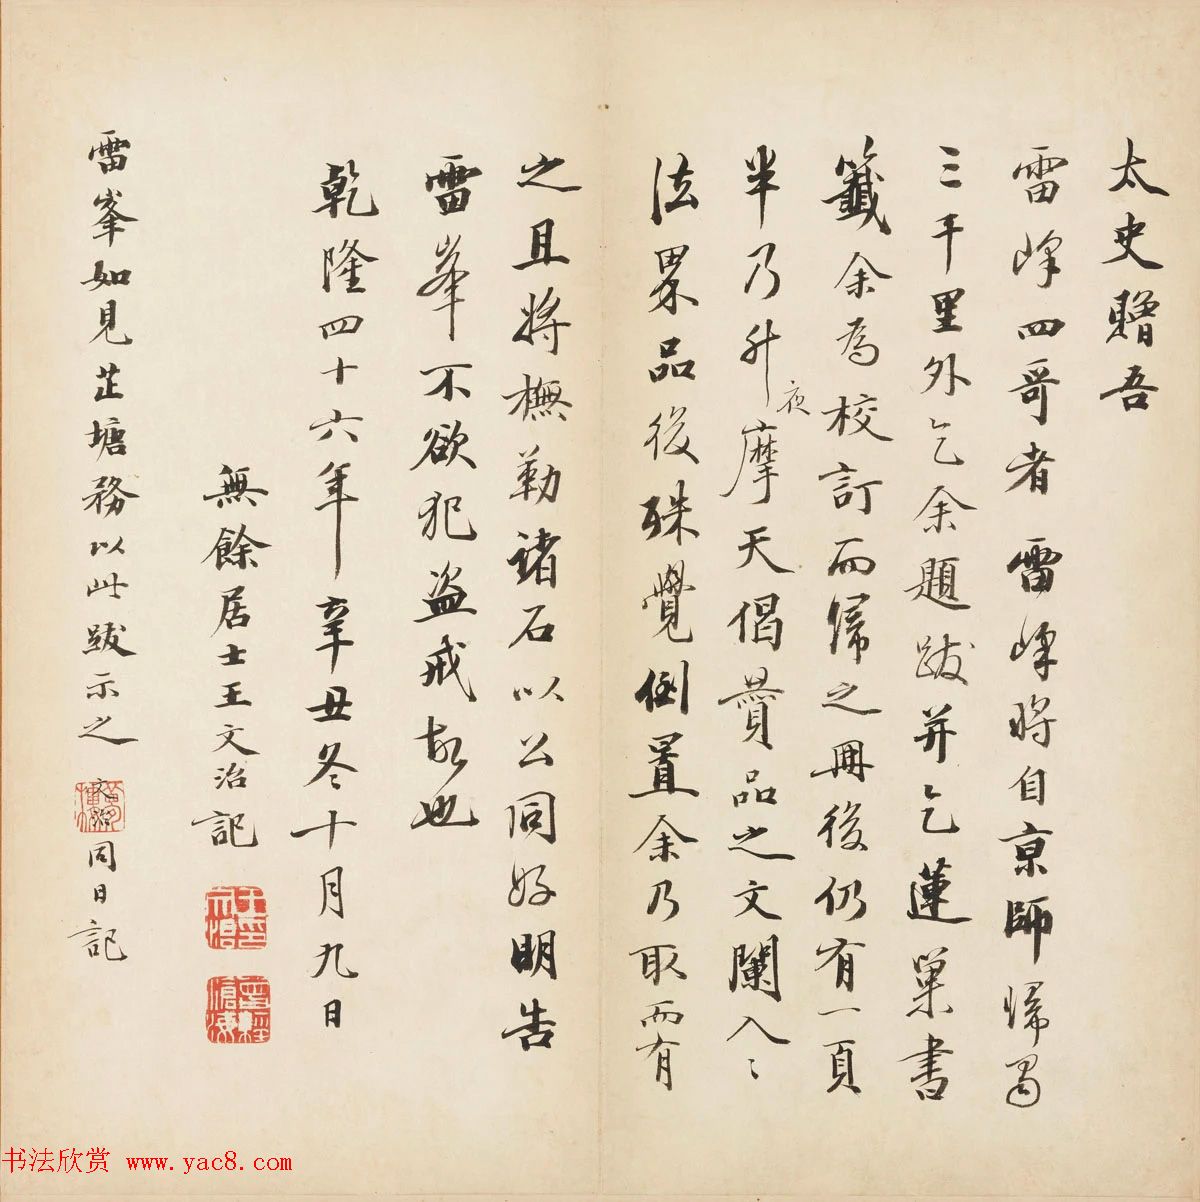 太史贈吾
雷峰四哥者雷峰將自京師歸蜀
三千里外乞余題跋并乞蓮巢書
籤余為校訂而歸之冊後仍有一頁
半乃升夜摩天偈贊品之文闌入〻
法界品後殊覺倒置余乃取而有
之且將橅勒諸石以公同好明告
雷峯不欲犯盜戒故也
乾隆四十六年辛丑冬十月九日
無餘居士王文治記
雷峯如見芷塘務以此跋示之文治同日記
书法欣赏 www.yac8.com